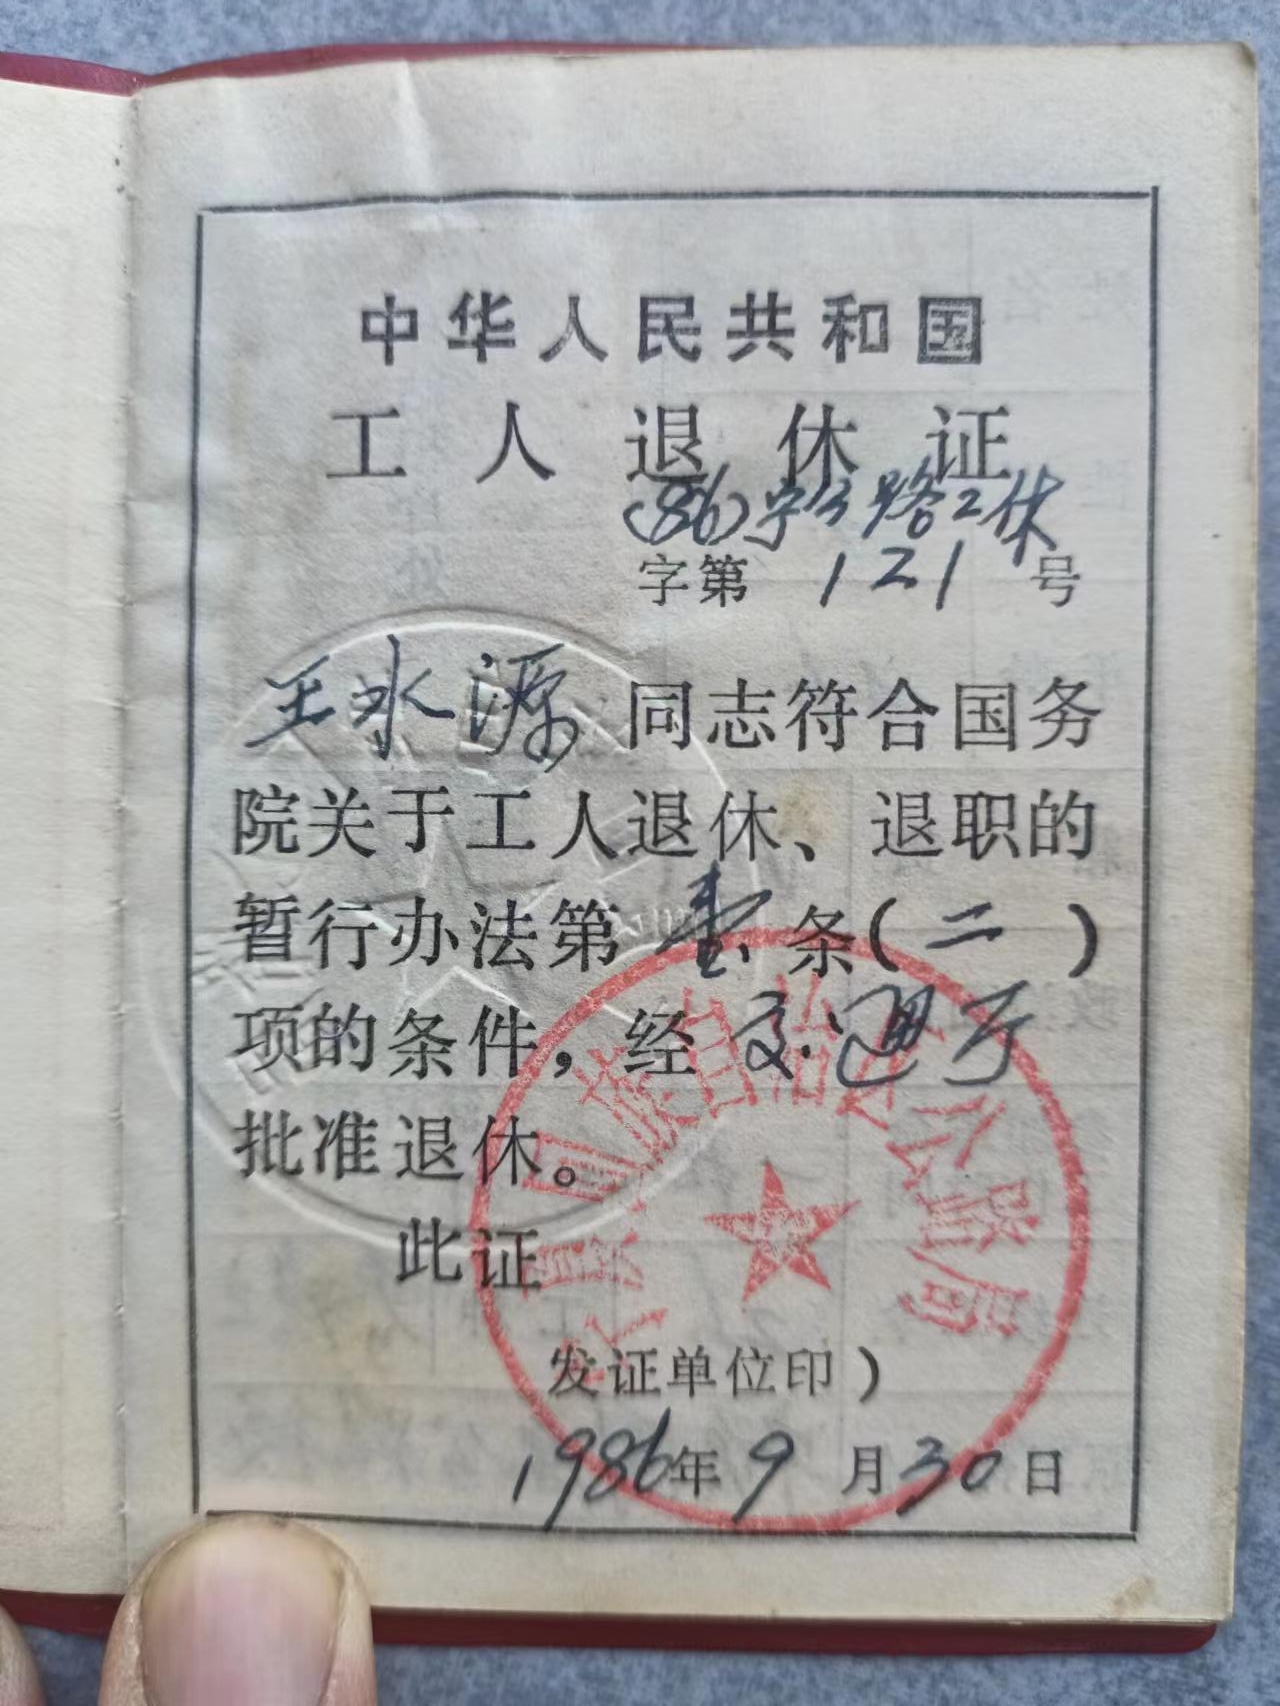 中华人民共和国
工人退休证
(86)宁公路工休
字第 121 号
王水源 同志符合国务
院关于工人退休、退职的
暂行办法第 壹 条(二)
项的条件，经 交通厅
批准退休。
此证
宁夏回族自治区公路局
发证单位印)
1986年 9 月 30 日